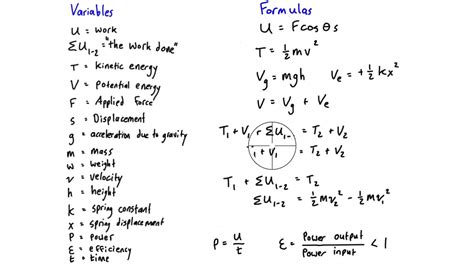 Variables
U = work
ΣU₁₋₂ = "the work done"
T = kinetic energy
V = Potential energy
F = Applied Force
s = Displacement
g = acceleration due to gravity
m = mass
w = weight
v = velocity
h = height
k = spring constant
x = spring displacement
P = power
ε = efficiency
t = time
Formulas
U = Fcosθs
T = ½mv²
Vg = mgh Ve = +½kx²
V = Vg + Ve
T₁ + V₁ + ΣU₁₋ = T₂ + V₂
₁ + V₁ = T₂ + V₂
T₁ + ΣU₁₋₂ = T₂
ΣU₁₋₂ = ½mv₂² - ½mv₁²
P = U/t ε = Power output/Power input < 1